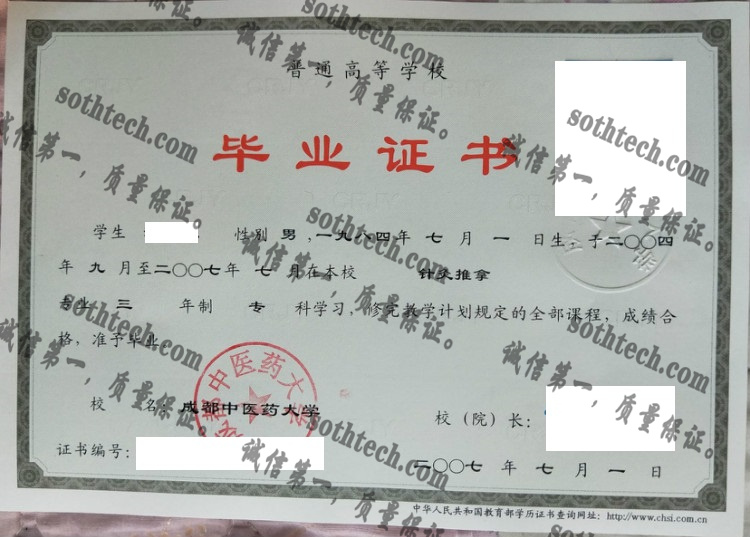 普通高等学校
毕业证书
学生 性别 男 ,一九八四年 七 月 一 日生, 于二〇〇四
年 九 月至二〇〇七年 七 月在本校 针灸推拿
专业 三 年制 专 科学习, 修完教学计划规定的全部课程, 成绩合
格, 准予毕业。
成都中医药大学
校 名: 成都中医药大学
校（院）长:
证书编号:
二〇〇七 年 七 月 一 日
中华人民共和国教育部学历证书查询网址: http://www.chsi.com.cn
sothtech.com
诚信第一，质量保证。
sothtech.com
诚信第一，质量保证。
sothtech.com
诚信第一，质量保证。
sothtech.com
诚信第一，质量保证。
sothtech.com
诚信第一，质量保证。
sothtech.com
诚信第一，质量保证。
sothtech.com
诚信第一，质量保证。
sothtech.com
诚信第一，质量保证。